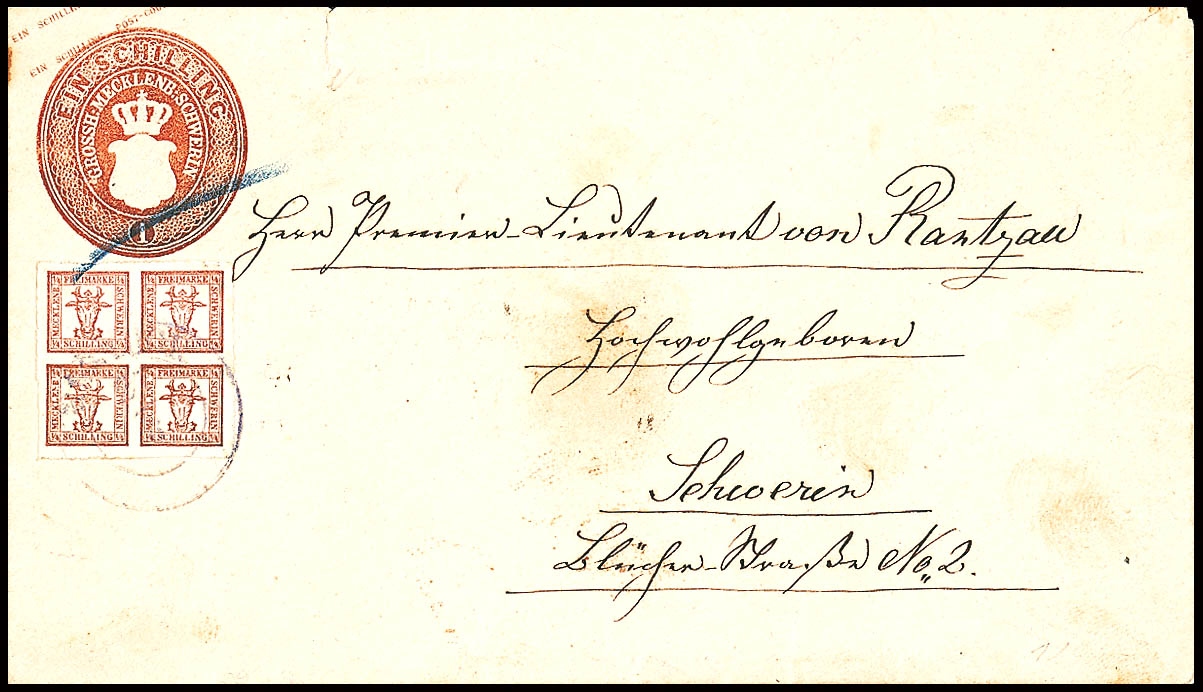 EIN SCHILLIN
EIN SCHILLING POST-COU
EIN SCHILLING
GROSSH. MECKLENB. SCHWERIN
1
1/4 FREIMARKE 1/4
MECKLENB
SCHWERIN
1/4 SCHILLING 1/4
1/4 FREIMARKE 1/4
MECKLENB
SCHWERIN
1/4 SCHILLING 1/4
1/4 FREIMARKE 1/4
MECKLENB
SCHWERIN
1/4 SCHILLING 1/4
1/4 FREIMARKE 1/4
MECKLENB
SCHWERIN
1/4 SCHILLING 1/4
Herr Premier-Lieutenant von Rantzau
Hochwohlgeboren
Schwerin
Blücher-Straße No 2.